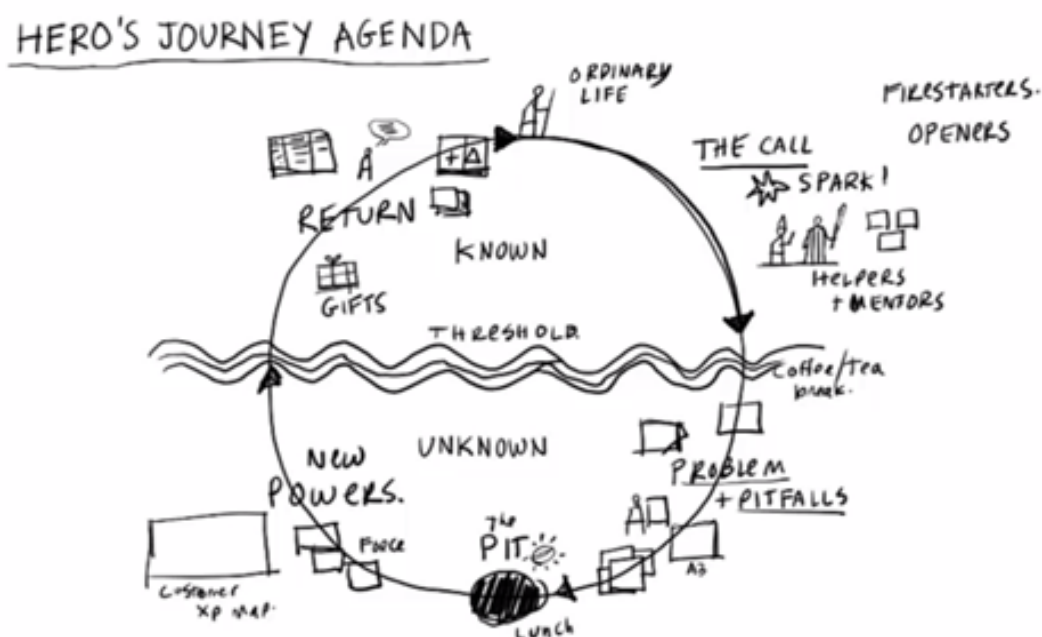 HERO'S JOURNEY AGENDA
ORDINARY
LIFE
FIRESTARTERS.
OPENERS
THE CALL
SPARK!
HELPERS
+ MENTORS
RETURN
KNOWN
GIFTS
THRESHOLD.
Coffee/Tea
break.
UNKNOWN
PROBLEM
+ PITFALLS
NEW
POWERS.
The
PIT
A3
Customer
XP MAP.
Lunch